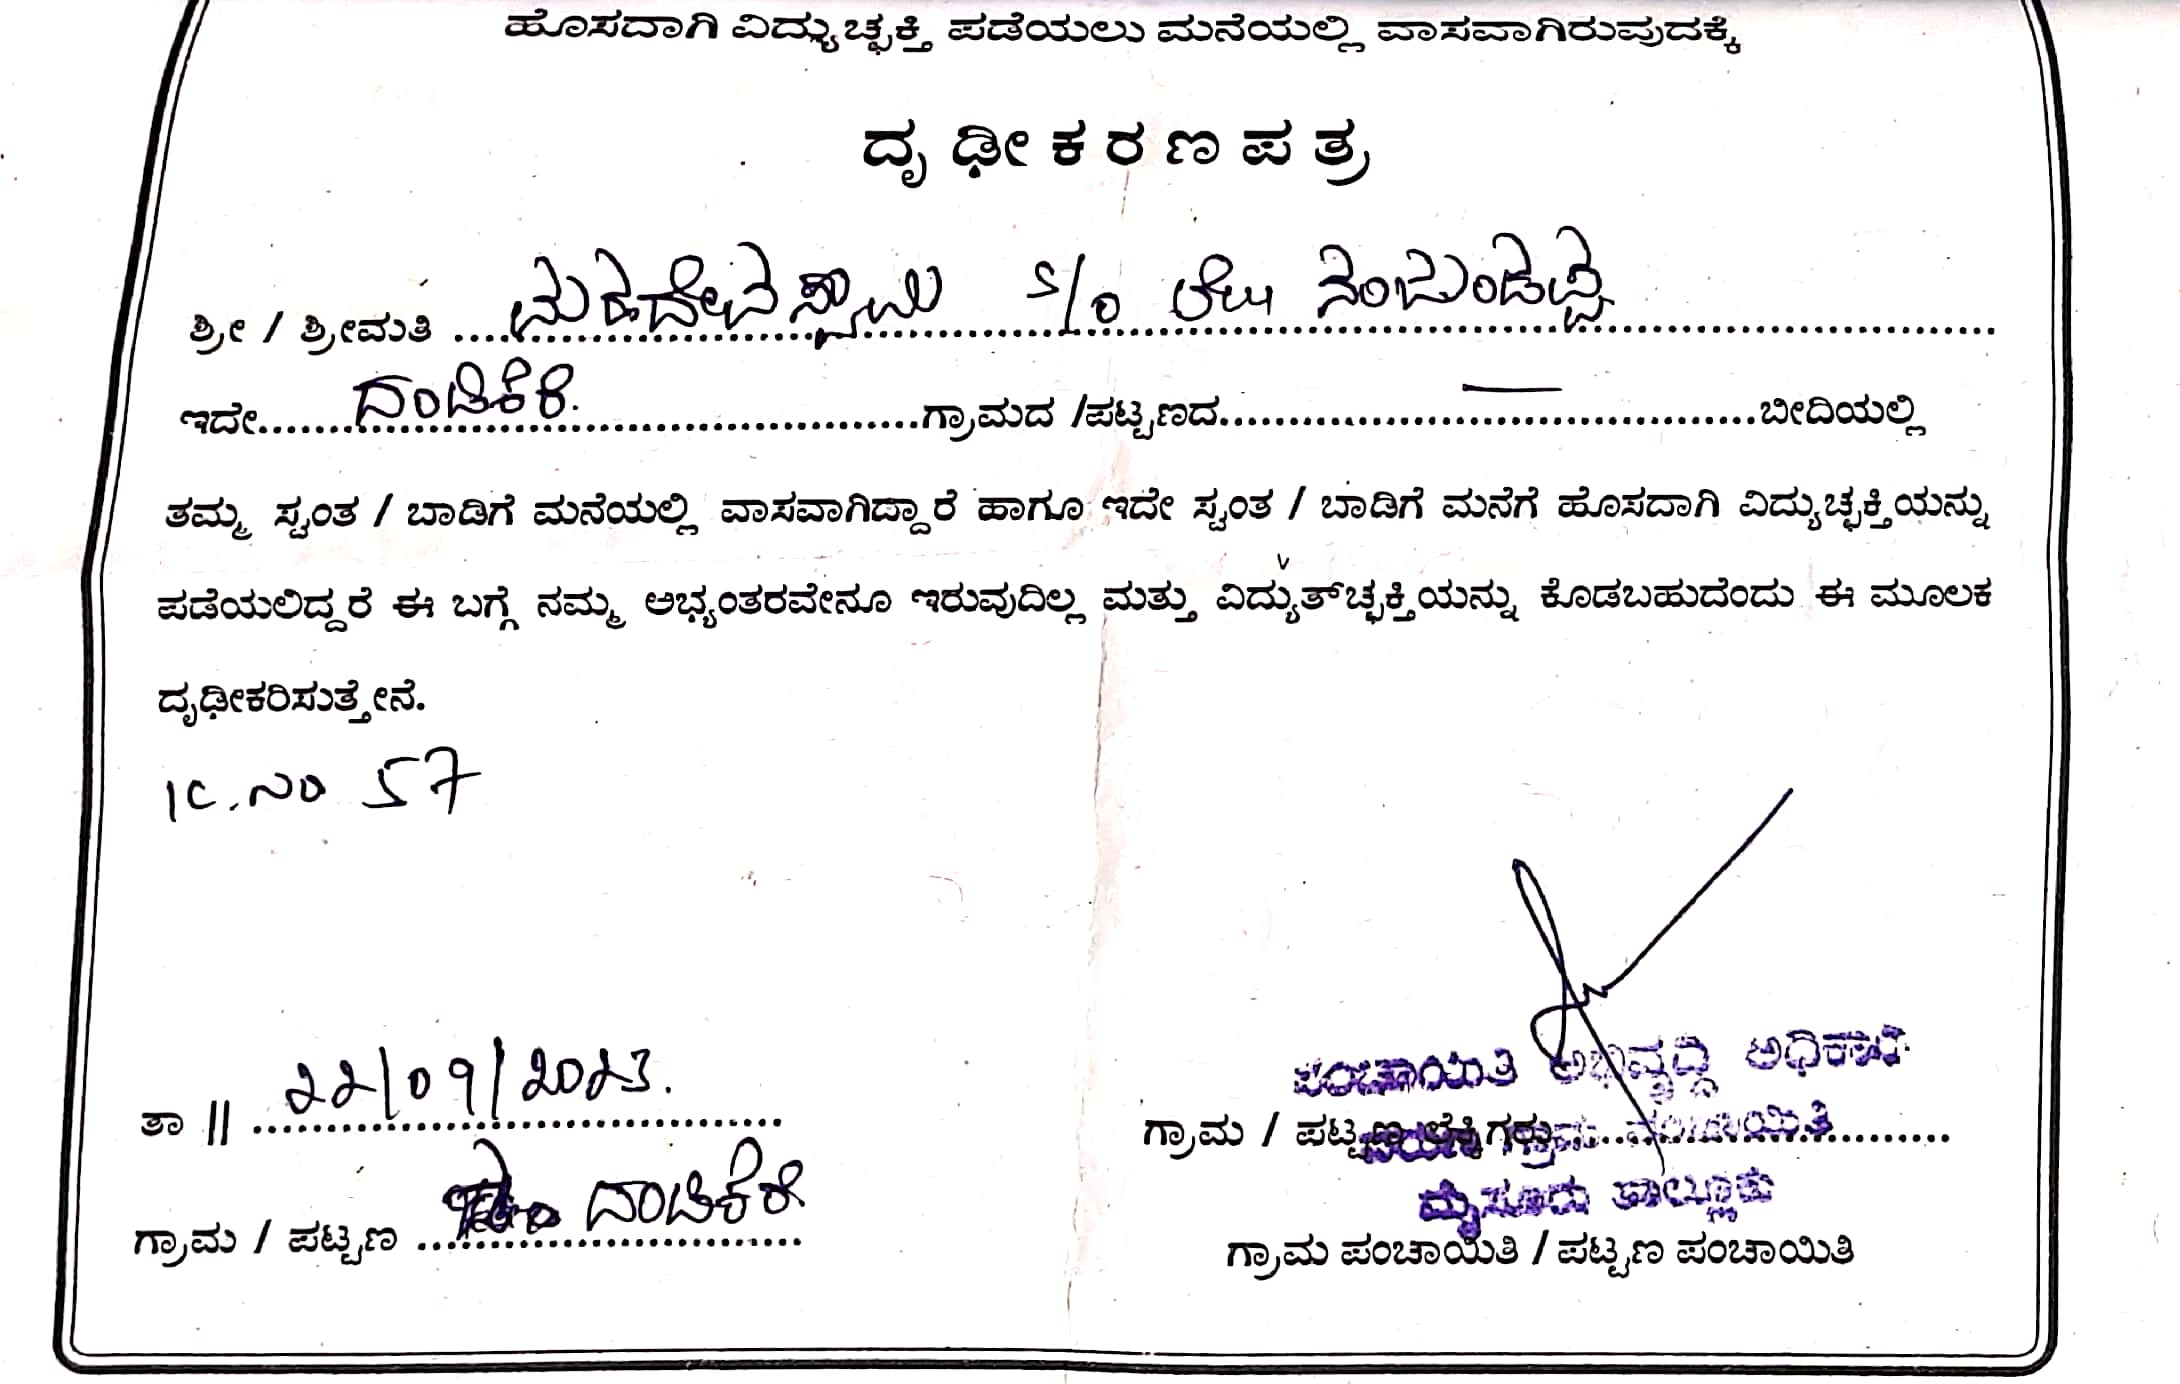 ಹೊಸದಾಗಿ ವಿದ್ಯುಚ್ಛಕ್ತಿ ಪಡೆಯಲು ಮನೆಯಲ್ಲಿ ವಾಸವಾಗಿರುವುದಕ್ಕೆ
ದೃಢೀಕರಣಪತ್ರ
ಶ್ರೀ / ಶ್ರೀಮತಿ ಮಹದೇವಸ್ವಾಮಿ S/o ಲೇಟ್
ಇದೇ ದಂಡಿಕೆರೆ. ಗ್ರಾಮದ /ಪಟ್ಟಣದ — ಬೀದಿಯಲ್ಲಿ
ತಮ್ಮ ಸ್ವಂತ / ಬಾಡಿಗೆ ಮನೆಯಲ್ಲಿ ವಾಸವಾಗಿದ್ದಾರೆ ಹಾಗೂ ಇದೇ ಸ್ವಂತ / ಬಾಡಿಗೆ ಮನೆಗೆ ಹೊಸದಾಗಿ ವಿದ್ಯುಚ್ಛಕ್ತಿಯನ್ನು
ಪಡೆಯಲಿದ್ದರೆ ಈ ಬಗ್ಗೆ ನಮ್ಮ ಅಭ್ಯಂತರವೇನೂ ಇರುವುದಿಲ್ಲ ಮತ್ತು ವಿದ್ಯುತ್‌ಚ್ಛಕ್ತಿಯನ್ನು ಕೊಡಬಹುದೆಂದು ಈ ಮೂಲಕ
ದೃಢೀಕರಿಸುತ್ತೇನೆ.
K.No 57
ಪಂಚಾಯಿತಿ ಅಭಿವೃದ್ಧಿ ಅಧಿಕಾರಿ
ತಾ || 22/09/2023.
ಗ್ರಾಮ / ಪಟ್ಟಣ ಲೆಕ್ಕಿಗರು
ಗ್ರಾಮ ಪಂಚಾಯಿತಿ
ಮೈಸೂರು ತಾಲ್ಲೂಕು
ಗ್ರಾಮ / ಪಟ್ಟಣ ದಂಡಿಕೆರೆ
ಗ್ರಾಮ ಪಂಚಾಯಿತಿ / ಪಟ್ಟಣ ಪಂಚಾಯಿತಿ